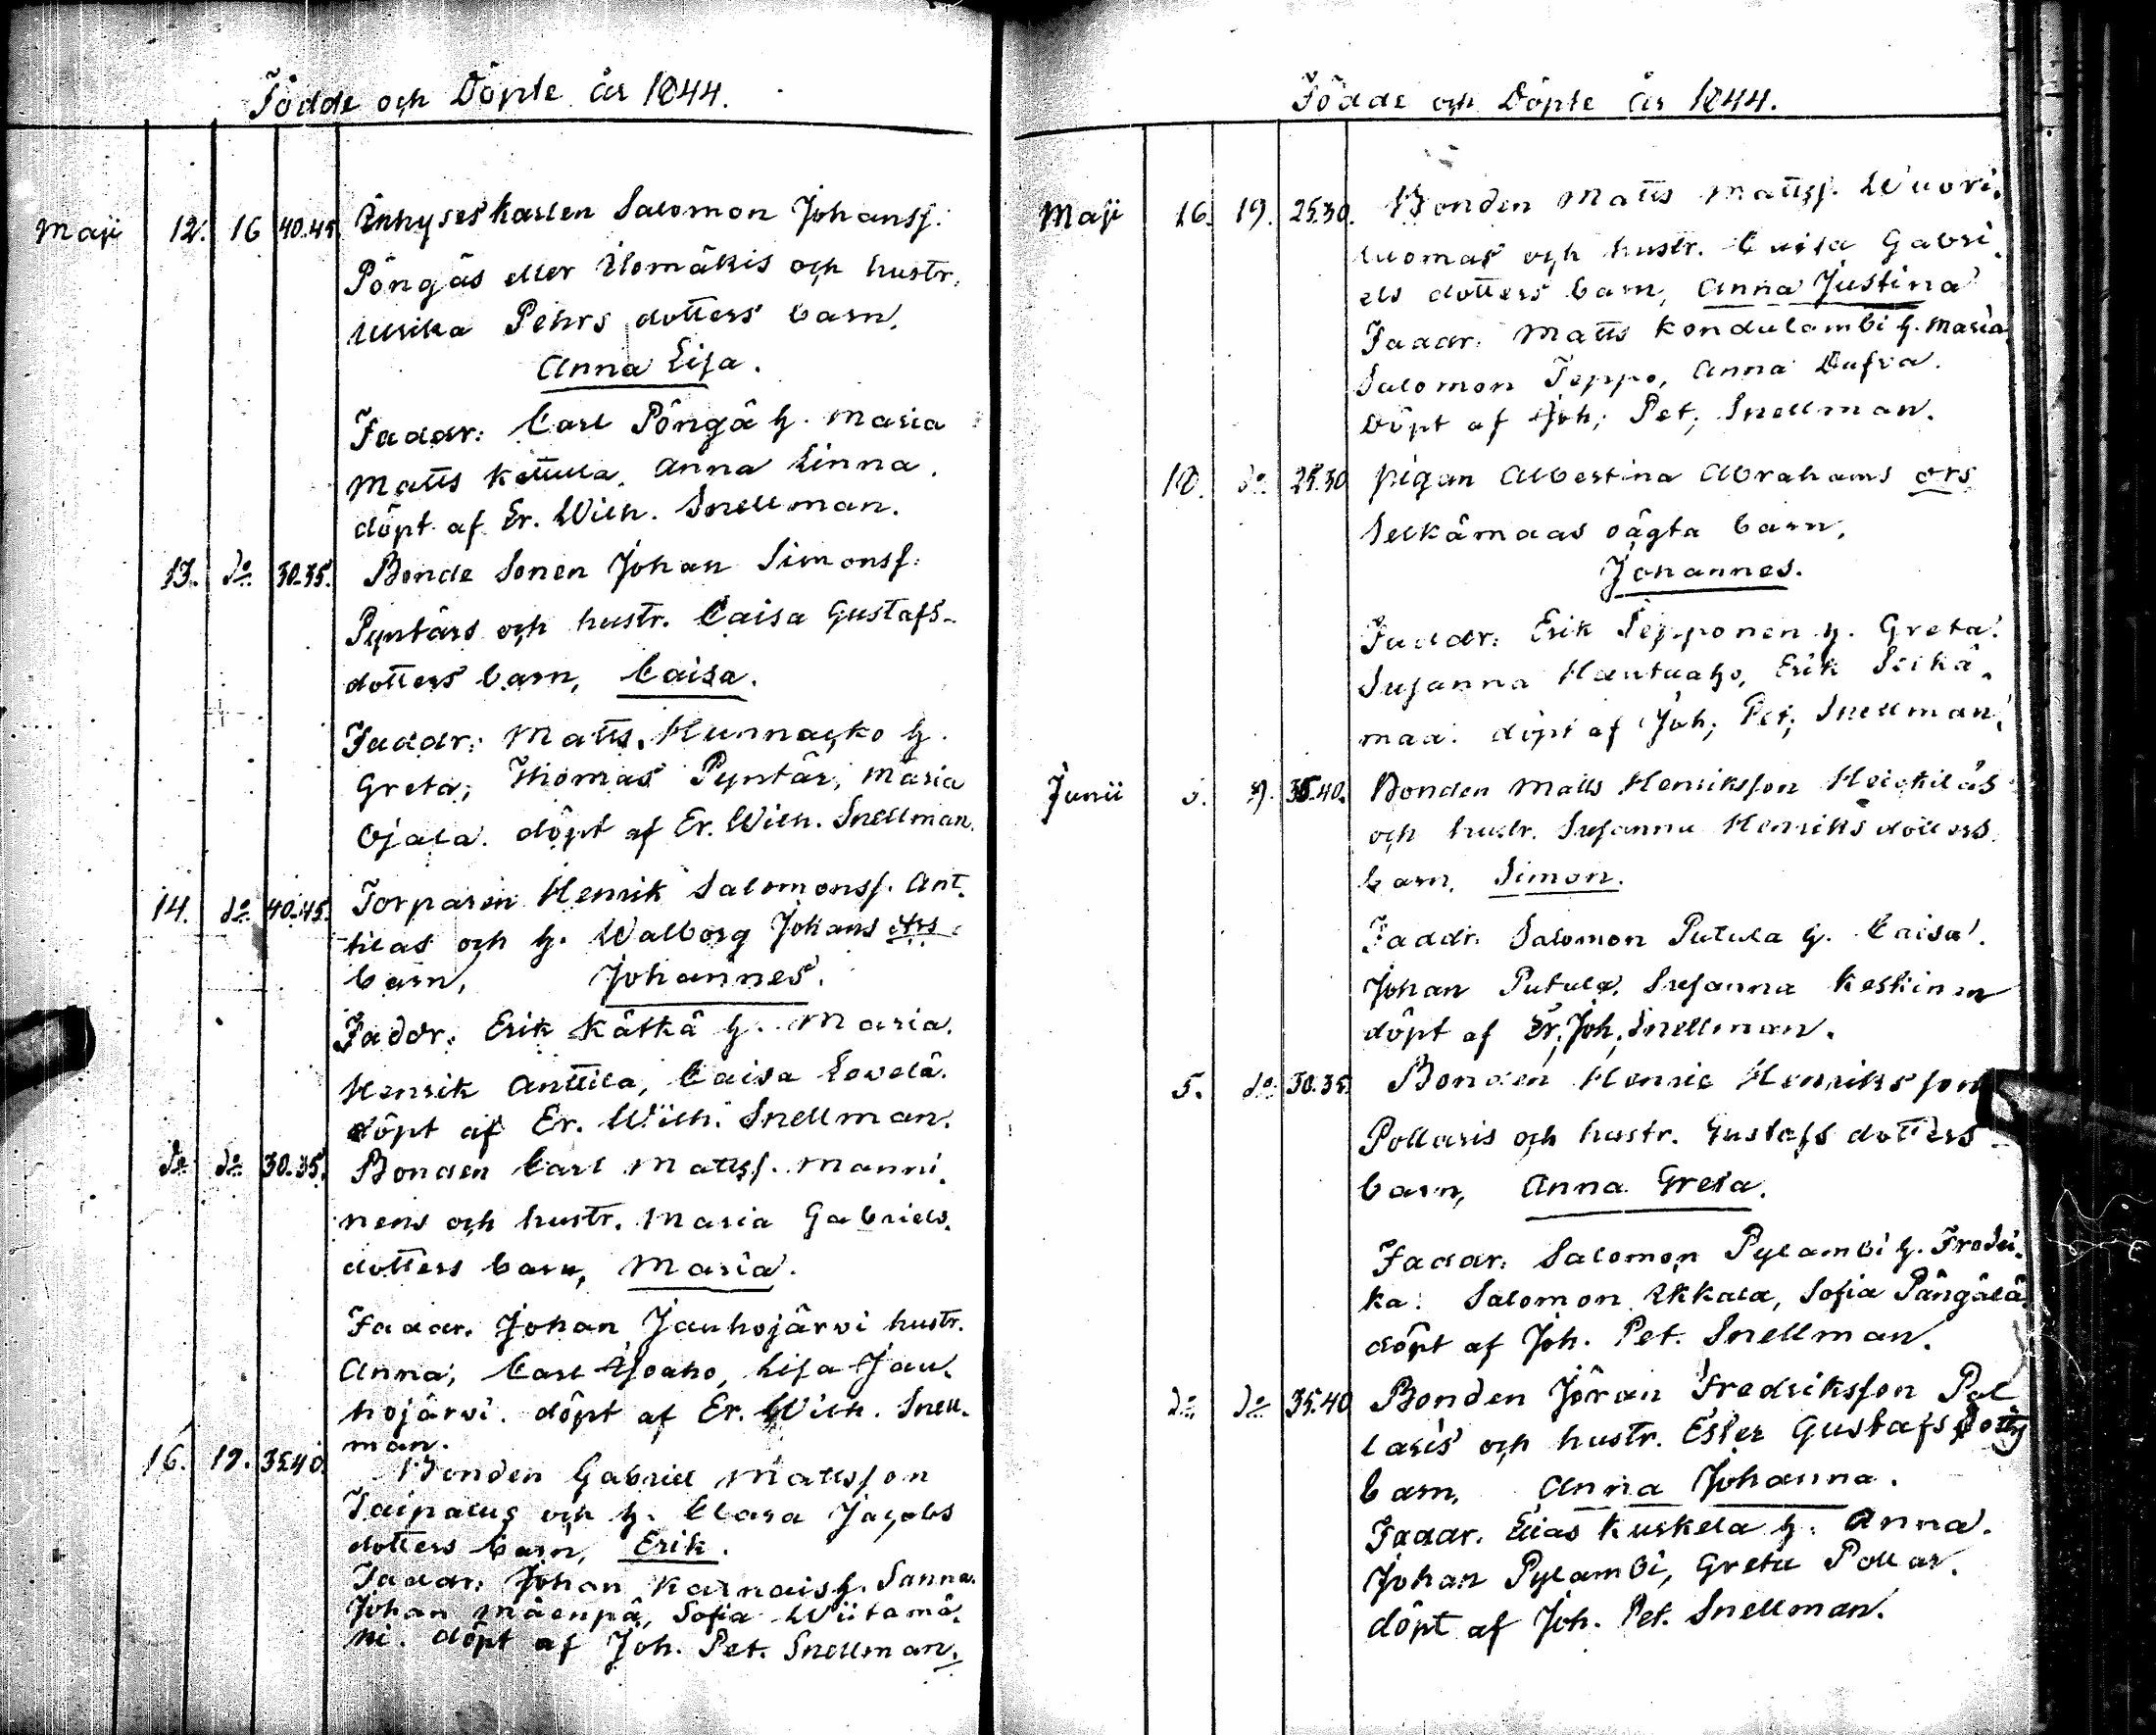 Födde och Döpte år 1844.
Maji 12. 16 40.45. Inhyseskarlen Salomon Johansf:
Pöngäs eller Ilomäkis och hustr.
Ulrika Pehrs dotters barn,
Anna Lisa.
Faddr: Carl Pöngä h. Maria
Matts Kettula, Anna Linna.
döpt af Er. Wilh. Snellman.
13. do 30.35. Bonde Sonen Johan Simonsf:
Pyntärs och hustr. Caisa Gustafs-
dotters barn, Caisa.
Faddr: Matts Hunnacko h.
Greta; Thomas Pyntär, Maria
Ojala. döpt af Er. Wilh. Snellman.
14. do 40.45. Torparen Henrik Salomonsf. Ant.
tilas och h. Walborg Johans dtrs
barn, Johannes.
Faddr: Erik Kätkä h. Maria.
Henrik Anttila, Caisa Lovelä.
döpt af Er. Wilh. Snellman.
do do 30.35. Bonden Carl Mattsf. Manni.
nens och hustr. Maria Gabriels.
dotters barn, Maria.
Faddr. Johan Jauhojärvi hustr.
Anna; Carl Isoaho, Lisa Jau.
hojärvi. döpt af Er. Wilh. Snell.
man.
16. 19. 35.40. Bonden Gabriel Mattsson
Taipalus och h. Clara Jacobs
dotters barn, Erik.
Faddr: Johan Karnais h. Sanna.
Johan Mäenpä, Sofia Wiitamä.
ki. döpt af Joh. Pet. Snellman.
Födde och Döpte år 1844.
Maji 16. 19. 25.30. Bonden Matts Mattsf. Wuori.
luomas och hustr. Caisa Gabri.
els dotters barn, Anna Justina
Faddr: Matts Kondulambi h. Maria
Salomon Teppo, Anna Dufva.
döpt af Joh; Pet; Snellman.
18. do 25.30 pigan Albertina Abrahams drs
Selkämaas oägta barn,
Johannes.
Faddr: Erik Tepponen h. Greta.
Susanna Hautaaho, Erik Selkä.
maa. döpt af Joh; Pet; Snellman.
Junii 9. 35.40. Bonden Matts Henriksson Heickiläs
och hustr. Susanna Henriks dotters
barn, Simon.
Faddr. Salomon Putula h. Caisa.
Johan Putula, Susanna Keskinen
döpt af Er; Joh; Snellman.
5. do 30.35. Bonden Henric Henriksson
Pollaris och hustr. Gustafs dotters
barn, Anna Greta.
Faddr. Salomon Pylambi h. Fredri.
ka. Salomon Ukkala, Sofia Pängälä.
döpt af Joh. Pet. Snellman.
do do 35.40 Bonden Jöran Fredriksson Pol
laris och hustr. Ester Gustafs dotters
barn, Anna Johanna.
Faddr. Elias Kuskela h. Anna.
Johan Pylambi, Greta Pollar.
döpt af Joh. Pet. Snellman.